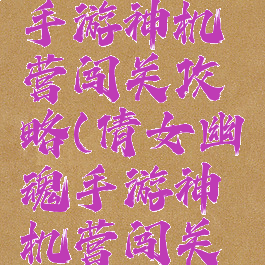 手游神机
营闯关攻
略(倩女幽
魂手游神
机营闯关